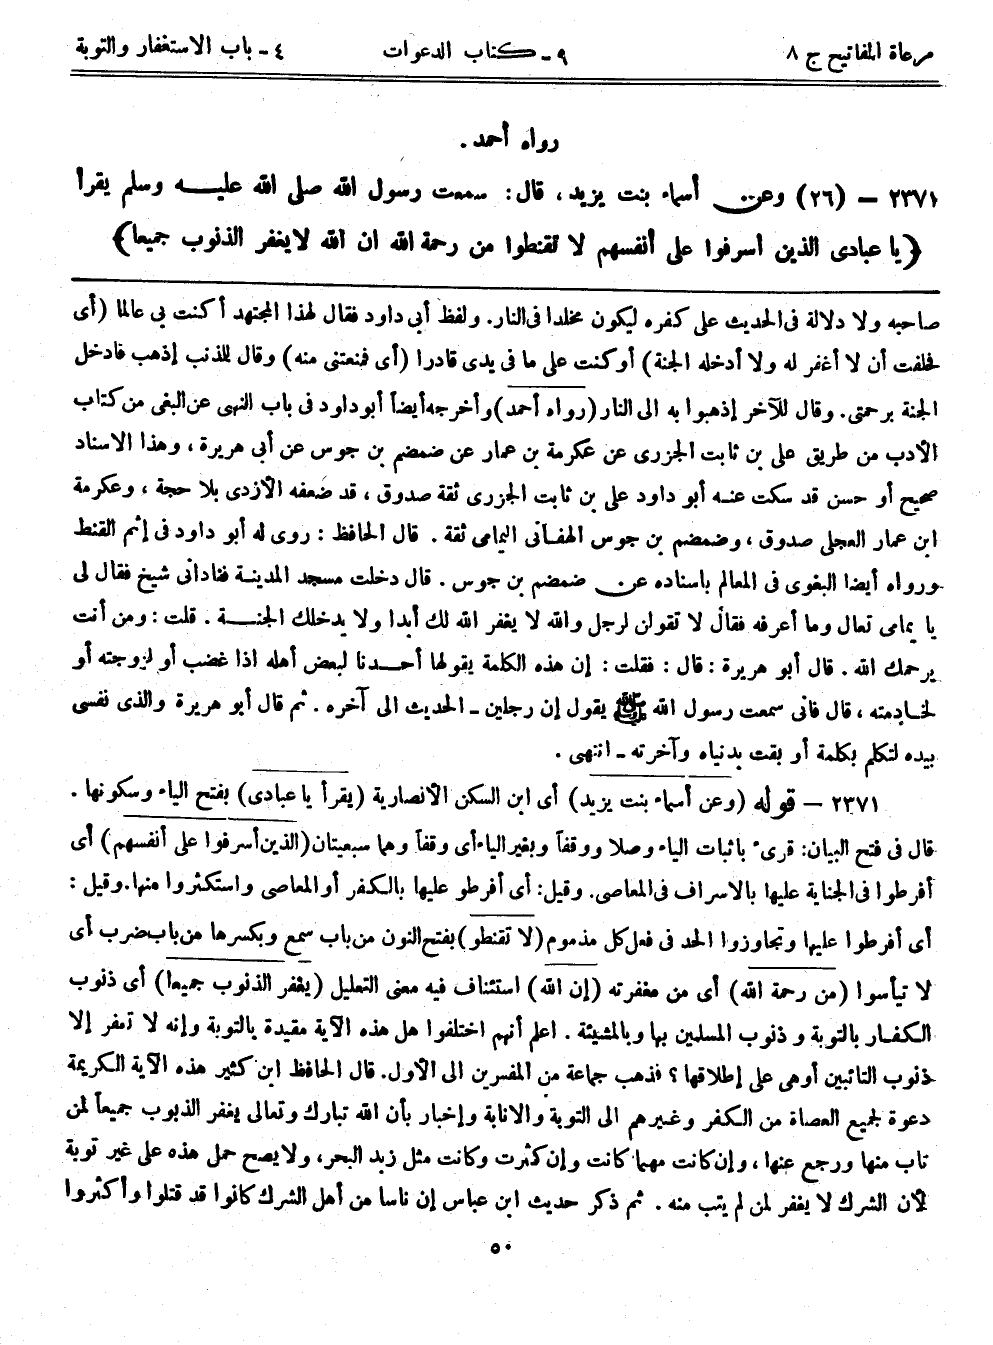 مرعاة المفاتيح ج ٨ ٩ ـ كتاب الدعوات ٤ ـ باب الاستغفار والتوبة
رواه أحمد .
٢٣٧١ – (٢٦) وعن أسماء بنت يزيد ، قال : سمعت رسول الله صلى الله عليه وسلم يقرأ
﴿يا عبادى الذين أسرفوا على أنفسهم لا تقنطوا من رحمة الله ان الله لا يغفر الذنوب جميعا﴾
صاحبه ولا دلالة فى الحديث على كفره ليكون مخلدا فى النار. ولفظ أبى داود فقال لهذا المجتهد أكنت بى عالما (أى
فحلفت أن لا أغفر له ولا أدخله الجنة) أو كنت على ما فى يدى قادرا (أى فمنعتنى منه) وقال للذنب إذهب فادخل
الجنة برحمتى. وقال للآخر إذهبوا به الى النار (رواه أحمد) وأخرجه أيضاً أبو داود فى باب النهى عن البغى من كتاب
الأدب من طريق على بن ثابت الجزرى عن عكرمة بن عمار عن ضمضم بن جوس عن أبى هريرة ، وهذا الاسناد
صحيح أو حسن قد سكت عنه أبو داود على بن ثابت الجزرى ثقة صدوق ، قد ضعفه الأزدى بلا حجة ، وعكرمة
ابن عمار العجلى صدوق ، وضمضم بن جوس الهفانى اليمامى ثقة . قال الحافظ : روى له أبو داود فى إثم القنط
ورواه أيضا البغوى فى المعالم باسناده عن ضمضم بن جوس . قال دخلت مسجد المدينة فنادانى شيخ فقال لى
يا يمامى تعال وما أعرفه فقال لا تقولن لرجل والله لا يغفر الله لك أبدا ولا يدخلك الجنة . قلت : ومن أنت
يرحمك الله . قال أبو هريرة : قال : فقلت : إن هذه الكلمة يقولها أحدنا لبعض أهله اذا غضب أو لزوجته أو
لخادمته ، قال فانى سمعت رسول الله ﷺ يقول إن رجلين ـ الحديث الى آخره . ثم قال أبو هريرة والذى نفسى
بيده لتكلم بكلمة أو بقت بدنياه وآخرته ـ انتهى .
٢٣٧١ – قوله (وعن أسماء بنت يزيد) أى ابن السكن الأنصارية (يقرأ يا عبادى) بفتح الياء وسكونها .
قال فى فتح البيان: قرىء باثبات الياء وصلا ووقفاً وبغير الياء أى وقفاً وهما سبعيتان (الذين أسرفوا على أنفسهم) أى
أفرطوا فى الجناية عليها بالاسراف فى المعاصى. وقيل: أى أفرطو عليها بالكفر أو المعاصى واستكثروا منها. وقيل :
أى أفرطوا عليها وتجاوزوا الحد فى فعل كل مذموم (لا تقنطو) بفتح النون من باب سمع وبكسرها من باب ضرب أى
لا تيأسوا (من رحمة الله) أى من مغفرته (إن الله) استئناف فيه معنى التعليل (يغفر الذنوب جميعا) أى ذنوب
الكفار بالتوبة و ذنوب المسلمين بها وبالمشيئة . اعلم أنهم اختلفوا هل هذه الآية مقيدة بالتوبة وإنه لا تغفر إلا
ذنوب التائبين أو هى على إطلاقها ؟ فذهب جماعة من المفسرين الى الأول. قال الحافظ ابن كثير هذه الآية الكريمة
دعوة لجميع العصاة من الكفر وغيرهم الى التوبة والانابة وإخبار بأن الله تبارك وتعالى يغفر الذنوب جميعاً لمن
تاب منها ورجع عنها ، وإن كانت مهما كانت وإن كثرت وكانت مثل زبد البحر، ولا يصح حمل هذه على غير توبة
لأن الشرك لا يغفر لمن لم يتب منه . ثم ذكر حديث ابن عباس إن ناسا من أهل الشرك كانوا قد قتلوا وأكثروا
٥٠